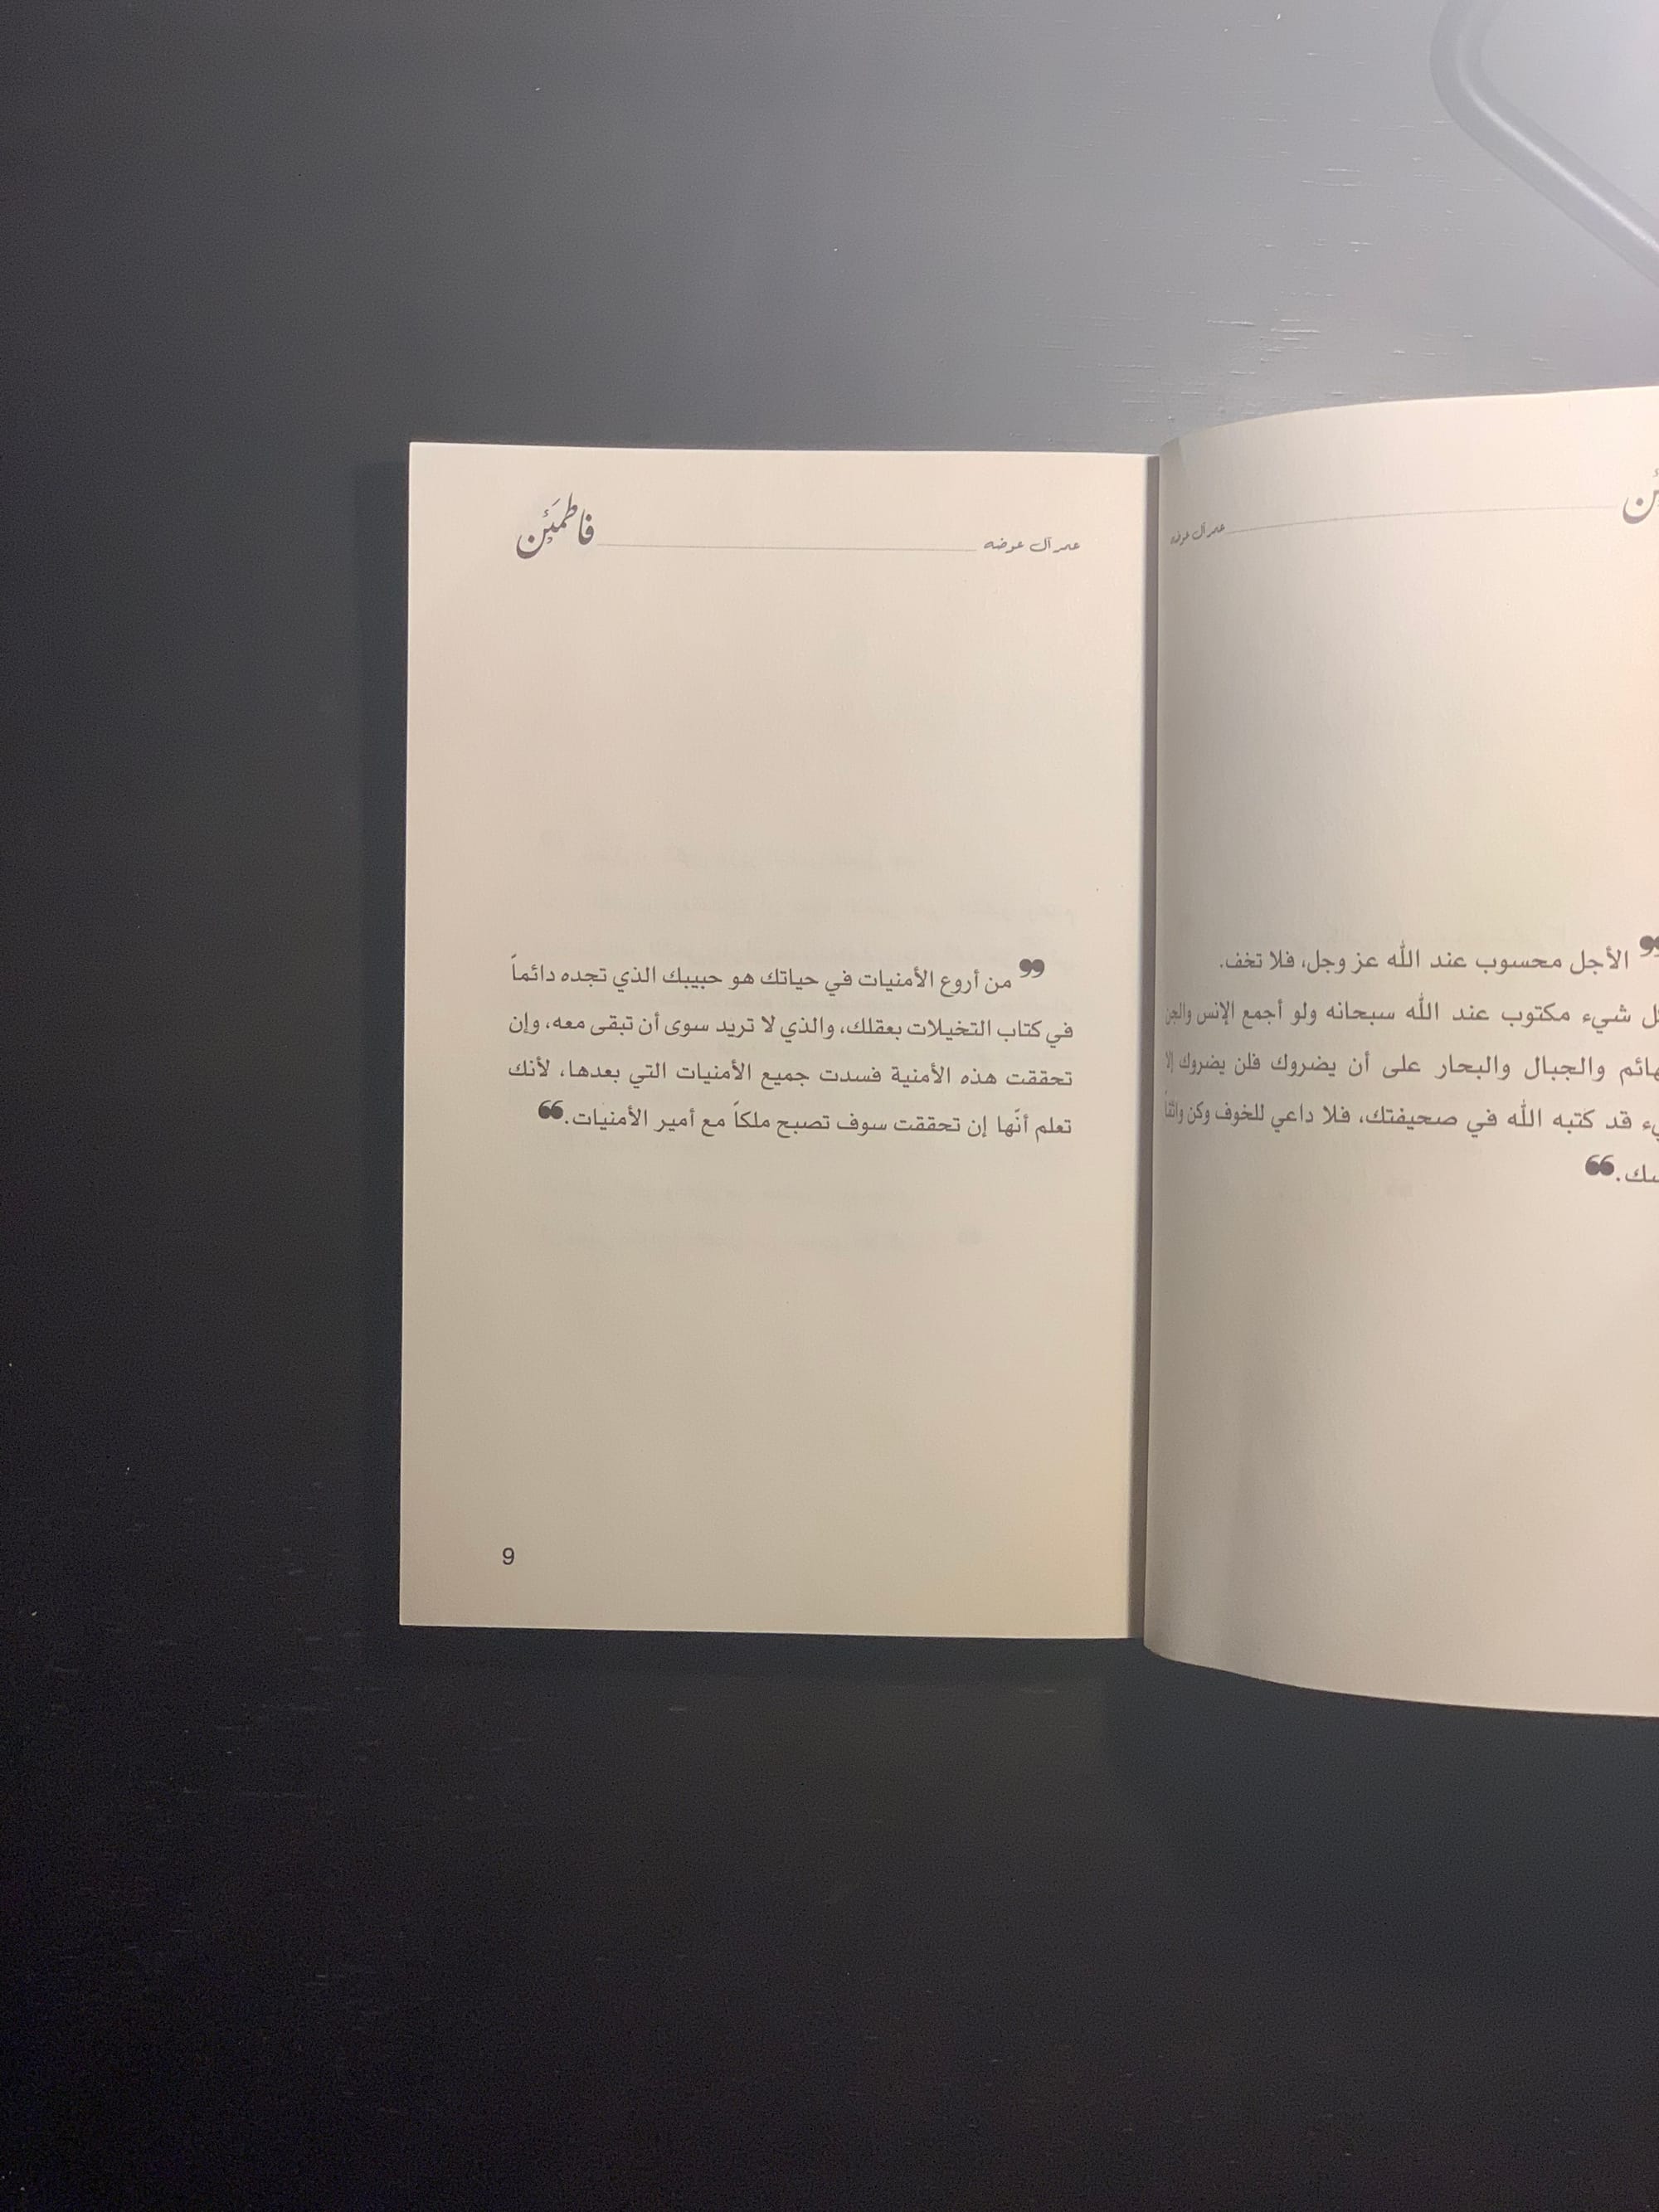 عمر آل عوضه
الأجل محسوب عند الله عز وجل، فلا تخف.
شيء مكتوب عند الله سبحانه ولو أجمع الإنس والجن
والجبال والبحار على أن يضروك فلن يضروك إلا
قد كتبه الله في صحيفتك، فلا داعي للخوف وكن واثقاً
عمر آل عوضه فاطمَئِن
❞ من أروع الأمنيات في حياتك هو حبيبك الذي تجده دائماً
في كتاب التخيلات بعقلك، والذي لا تريد سوى أن تبقى معه، وإن
تحققت هذه الأمنية فسدت جميع الأمنيات التي بعدها، لأنك
تعلم أنّها إن تحققت سوف تصبح ملكاً مع أمير الأمنيات.❝
9